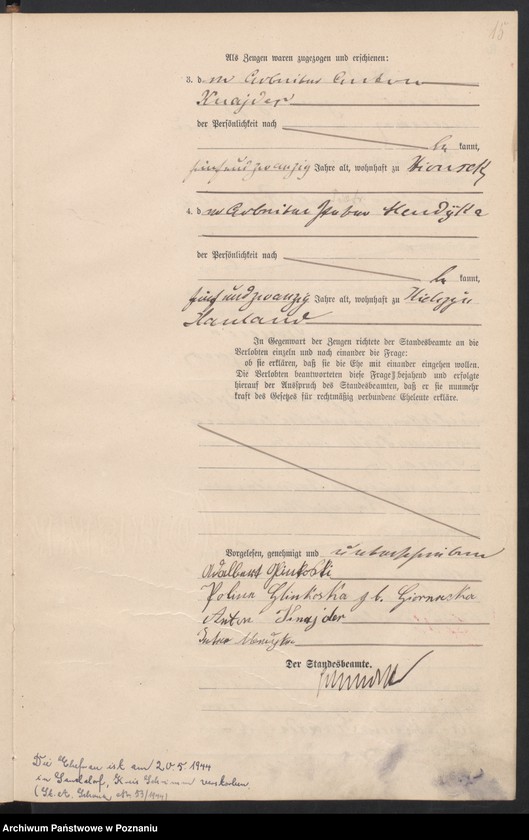 15
Als Zeugen waren zugezogen und erschienen:
3. dem Arbeiter Anton
Knajder
der Persönlichkeit nach
be kannt,
fünfundzwanzig Jahre alt, wohnhaft zu
4. dem Arbeiter
der Persönlichkeit nach
be kannt,
fünfundzwanzig Jahre alt, wohnhaft zu
Hauland
In Gegenwart der Zeugen richtete der Standesbeamte an die
Verlobten einzeln und nach einander die Frage:
ob sie erklären, daß sie die Ehe mit einander eingehen wollen.
Die Verlobten beantworteten diese Frage bejahend und erfolgte
hierauf der Ausspruch des Standesbeamten, daß er sie nunmehr
kraft des Gesetzes für rechtmäßig verbundene Eheleute erkläre.
Vorgelesen, genehmigt und unterschrieben
Adalbert Glinkoski
Glinkoska gb.
Anton Knajder
Der Standesbeamte.
Die Ehefrau ist am 20.5.1944
in Kreis verstorben
(St. A. Nr 53/1944)
Archiwum Państwowe w Poznaniu